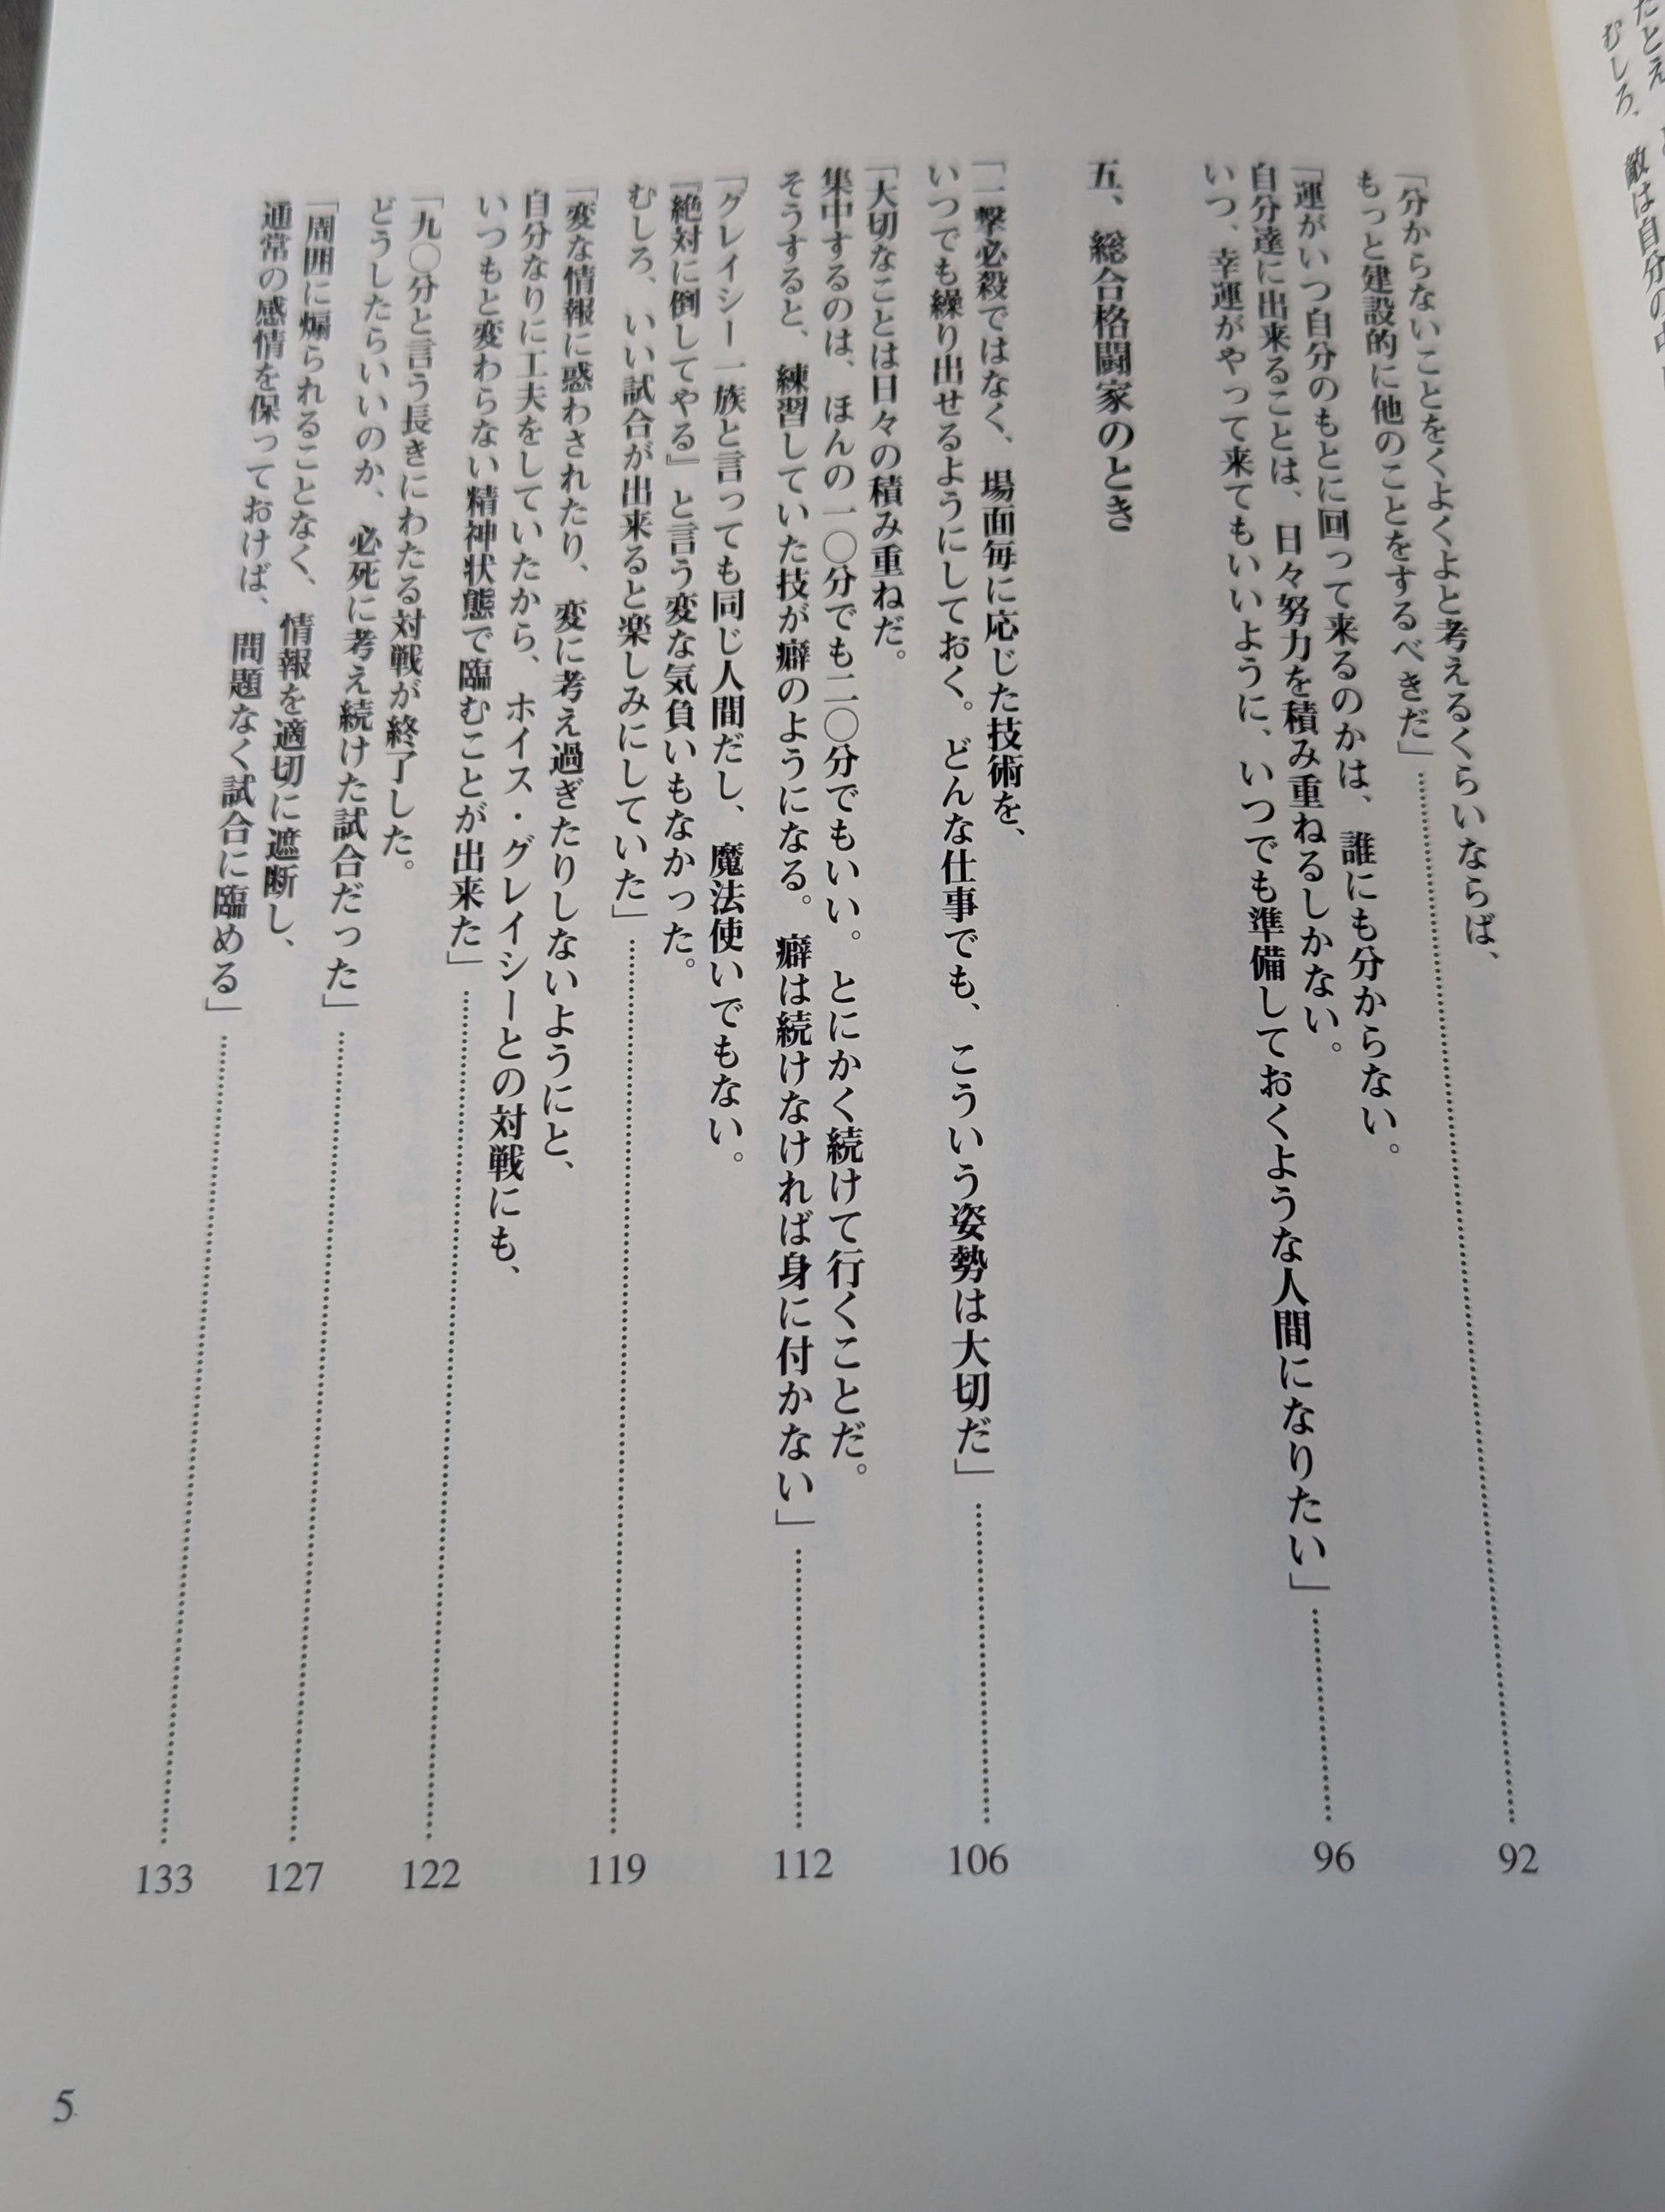 たとえ
むしろ、敵は自分の中
「分からないことをくよくよと考えるくらいならば、
もっと建設的に他のことをするべきだ」……92
「運がいつ自分のもとに回って来るのかは、誰にも分からない。
自分達に出来ることは、日々努力を積み重ねるしかない。
いつ、幸運がやって来てもいいように、いつでも準備しておくような人間になりたい」……96
五、総合格闘家のとき
「一撃必殺ではなく、場面毎に応じた技術を、
いつでも繰り出せるようにしておく。どんな仕事でも、こういう姿勢は大切だ」……106
「大切なことは日々の積み重ねだ。
集中するのは、ほんの一〇分でも二〇分でもいい。とにかく続けて行くことだ。
そうすると、練習していた技が癖のようになる。癖は続けなければ身に付かない」……112
「グレイシー一族と言っても同じ人間だし、魔法使いでもない。
『絶対に倒してやる』と言う変な気負いもなかった。
むしろ、いい試合が出来ると楽しみにしていた」……119
「変な情報に惑わされたり、変に考え過ぎたりしないようにと、
自分なりに工夫をしていたから、ホイス・グレイシーとの対戦にも、
いつもと変わらない精神状態で臨むことが出来た」……122
「九〇分と言う長きにわたる対戦が終了した。
どうしたらいいのか、必死に考え続けた試合だった」……127
「周囲に煽られることなく、情報を適切に遮断し、
通常の感情を保っておけば、問題なく試合に臨める」……133
5